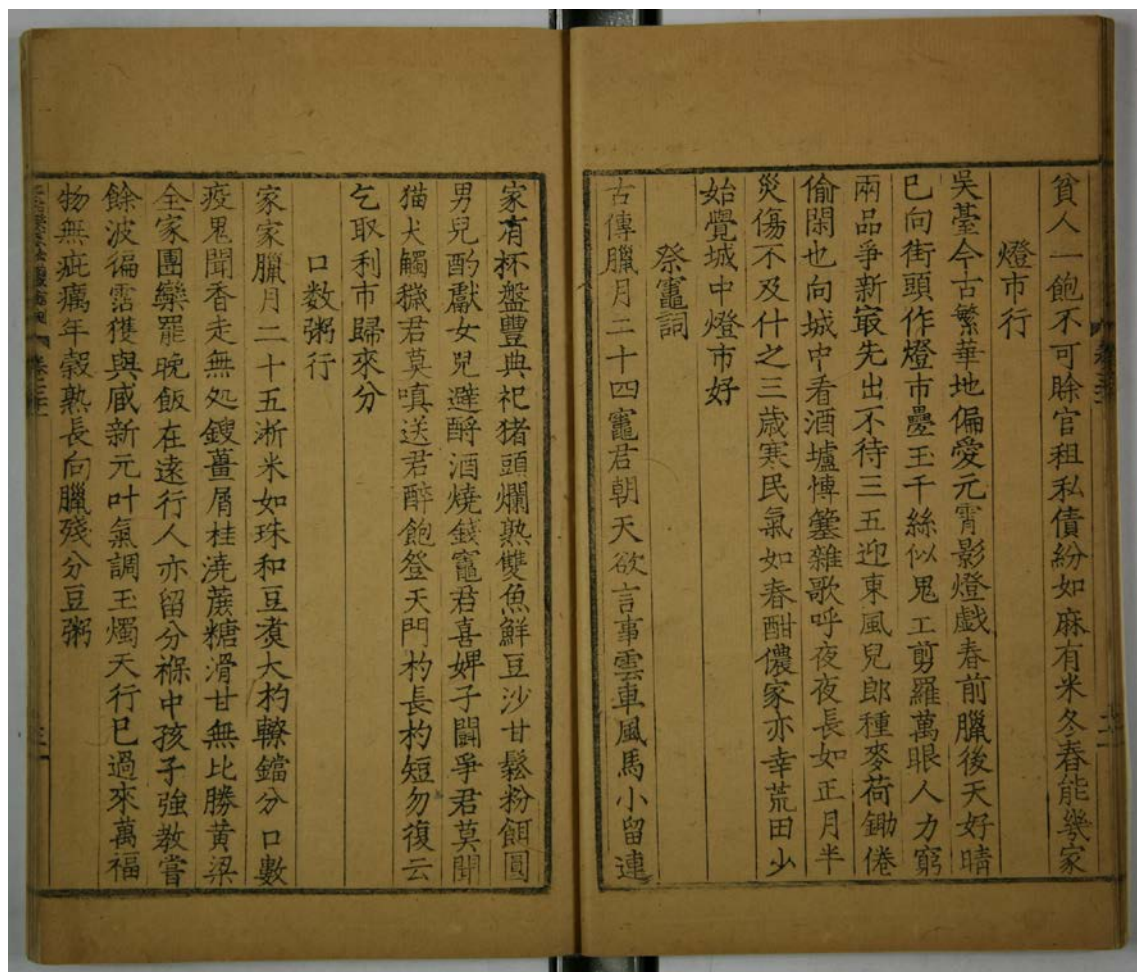 貧人一飽不可賖官租私債紛如麻有米冬舂能㡬家
燈市行
吳䑓今古繁華地偏愛元宵影燈戲春前臘後天好晴
巳向街頭作燈市疊玉千絲似鬼工剪羅萬眼人力窮
兩品爭新㝡先出不待三五迎東風兒郎種麥荷鋤倦
偷閑也向城中看酒壚慱簺雜歌呼夜夜長如正月半
災傷不及什之三歳寒民氣如春酣儂家亦幸荒田少
始覺城中燈市好
祭竈詞
古傳臘月二十四竈君朝天欲言事雲車風馬小留連
家有杯盤豐典祀猪頭爛熟雙魚鮮豆沙甘鬆粉餌圓
男兒酌獻女兒避酹酒燒錢竈君喜婢子鬭爭君莫聞
猫犬觸穢君莫嗔送君醉飽登天門杓長杓短勿復云
乞取利市歸來分
口数粥行
家家臘月二十五淅米如珠和豆煑大杓轑鐺分口數
疫鬼聞香走無処鎪薑屑桂澆蔗糖滑甘無比勝黄粱
全家團欒罷晚飯在遠行人亦留分褓中孩子強教嘗
餘波徧霑獲與臧新元叶氣調玉燭天行巳過來萬福
物無疵癘年穀熟長向臘殘分豆粥